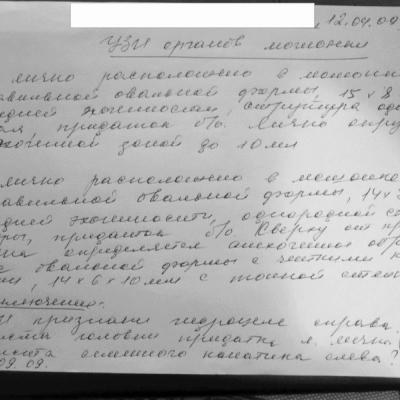 12.04.09
УЗИ органов мошонки
яичко расположено в мошон
авильной овальной формы, 15×8
едней эхогенности, структура одн
ая, придаток б/о. Яичко окру
эхогенной зоной до 10 мл
яичко расположено в мошонке
авильной овальной формы, 14×
едней эхогенности, однородной ст
ры, придаток б/о. Кверху от пр
ка определяется анэхогенное обр
овальной формы с четкими к
ми, 14×6×10 мм с тонкой стен
аключение:
И признаки гидроцеле справа.
иста головки придатка л. яичка
киста семенного канатика слева?
09.09.